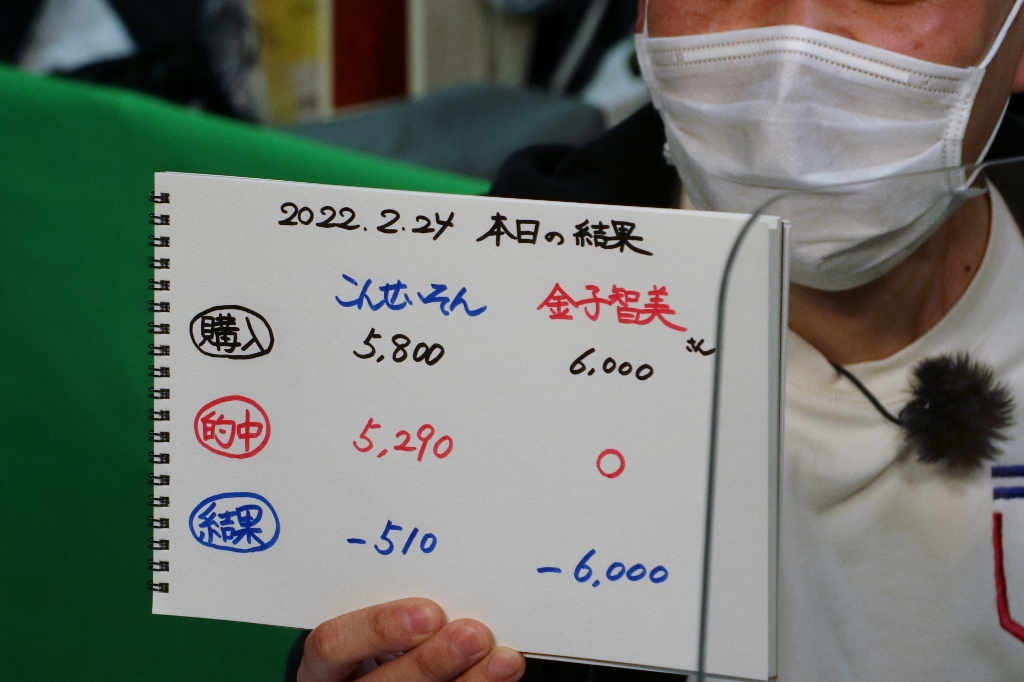 2022.2.24 本日の結果
こんせいそん 金子智美さん
購入 5,800 6,000
的中 5,290 0
結果 -510 -6,000